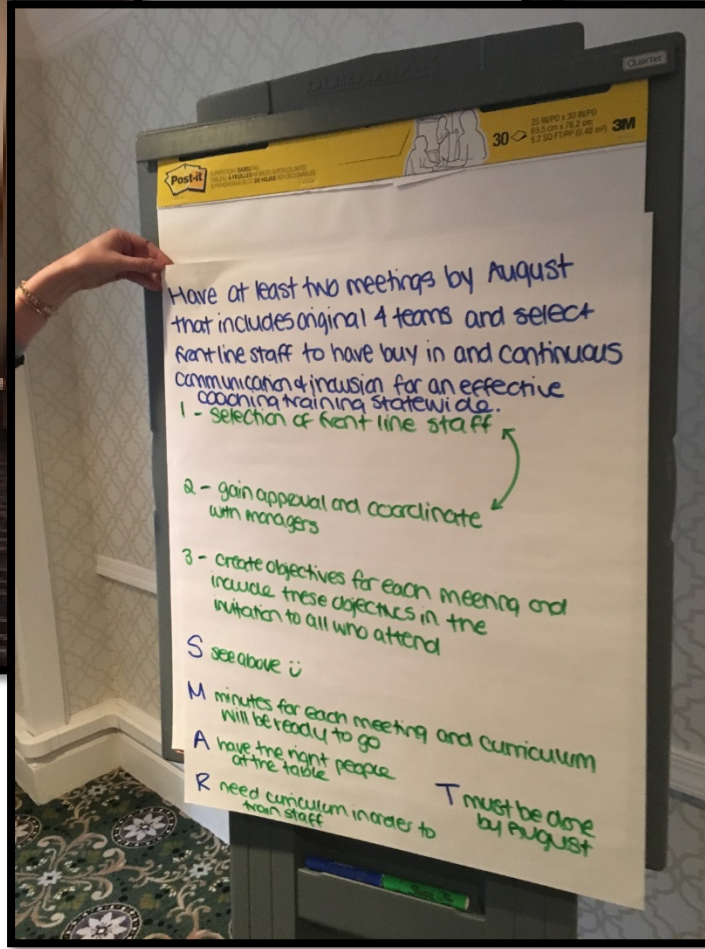 Quartet
Post-it
30
25 IN/PO x 30 IN/PO
63,5 cm x 76,2 cm
5.2 SQ FT/PP (0.48 m²)
3M
Have at least two meetings by August
that includes original 4 teams and select
front line staff to have buy in and continuous
communication & inclusion for an effective
coaching training statewide.
1 - selection of front line staff
2 - gain approval and coordinate
with managers
3 - create objectives for each meeting and
include these objectives in the
invitation to all who attend
S see above ü
M minutes for each meeting and curriculum
will be ready to go
A have the right people
at the table
R need curriculum in order to
train staff
T must be done
by August